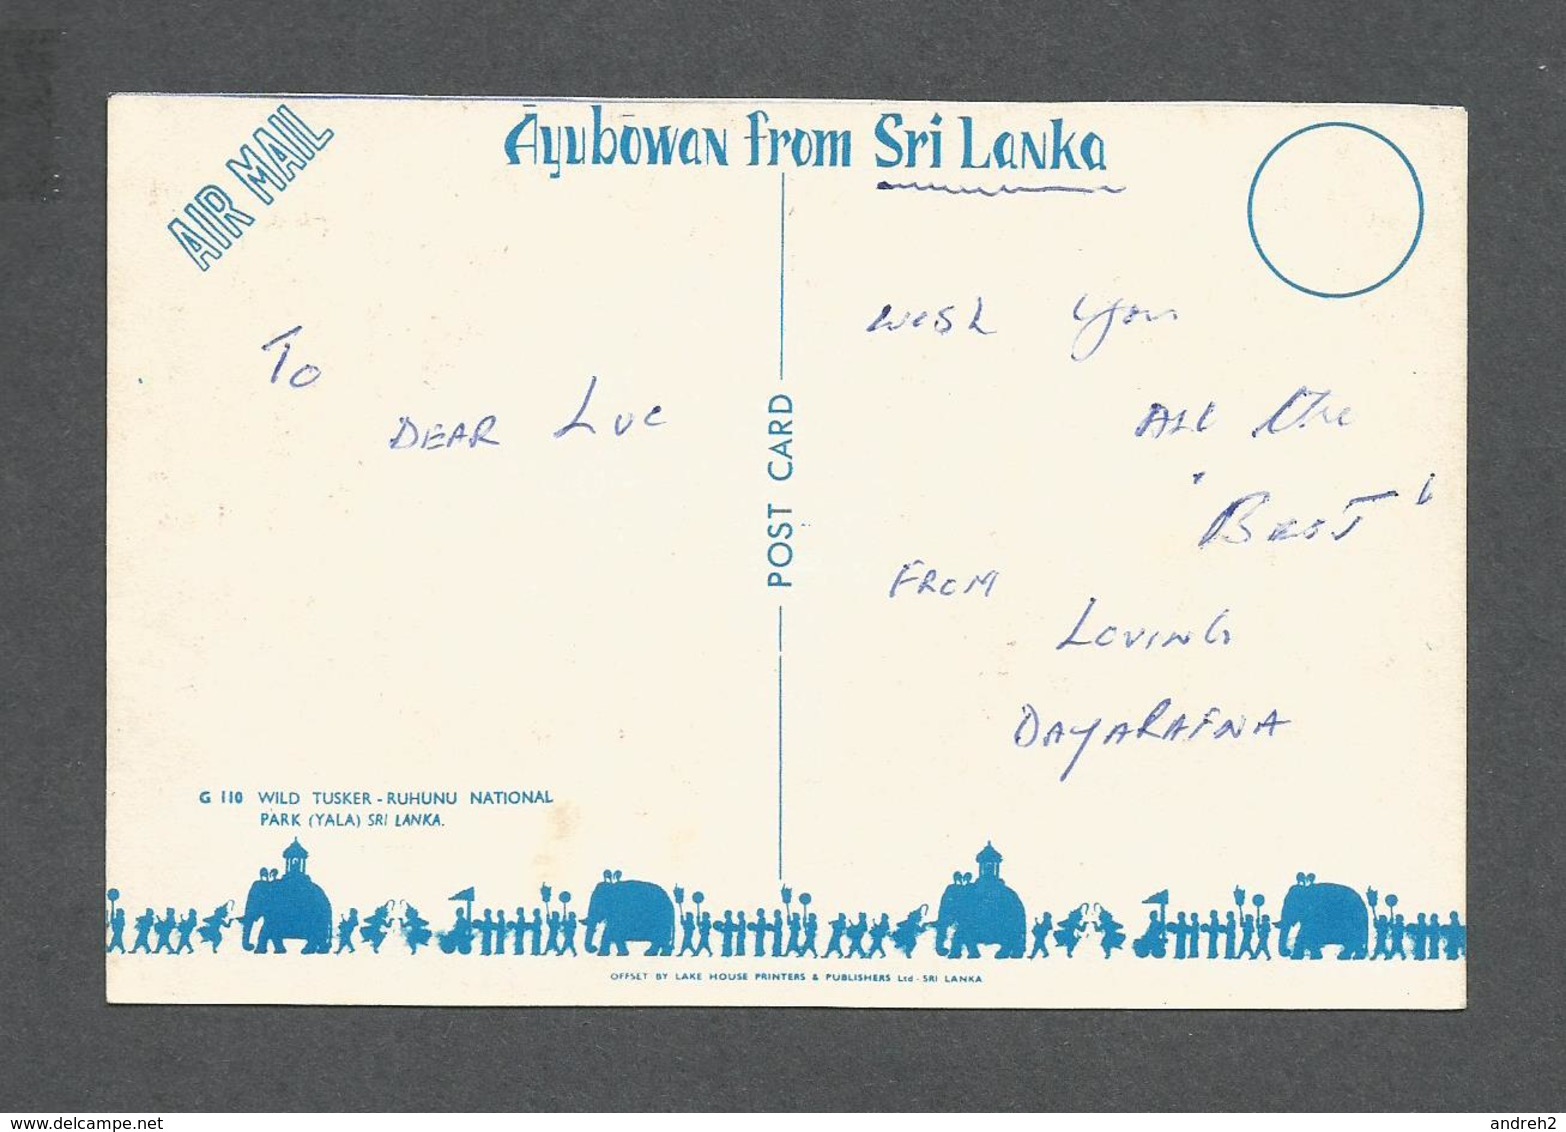 AIR MAIL
Āyubōwan from Sri Lanka
To
DEAR Luc
POST CARD
Wish you
All the
'Best'
FROM
LOVING
DAYARATNA
G 110 WILD TUSKER - RUHUNU NATIONAL
PARK (YALA) SRI LANKA.
OFFSET BY LAKE HOUSE PRINTERS & PUBLISHERS Ltd - SRI LANKA
andreh2